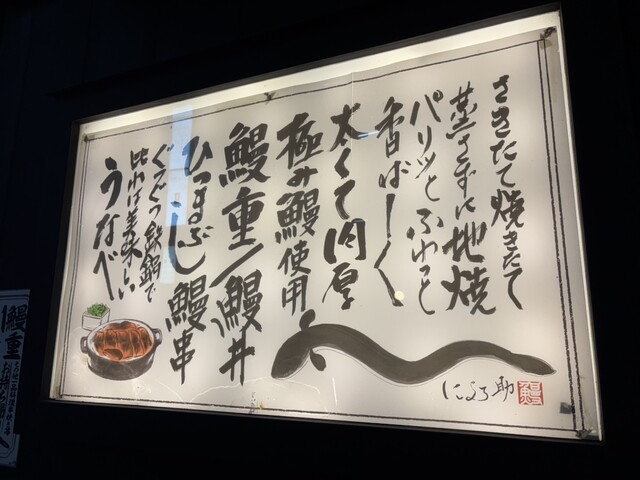 さきたて焼きたて
蒸さずに地焼
パリッとふわっと
香ばしく
太くて肉厚
極み鰻使用
鰻重/鰻丼
ひつまぶし 鰻串
ぐつぐつ鉄鍋で
出れば美味しい
うなべ
鰻
鰻重
お持ち帰り